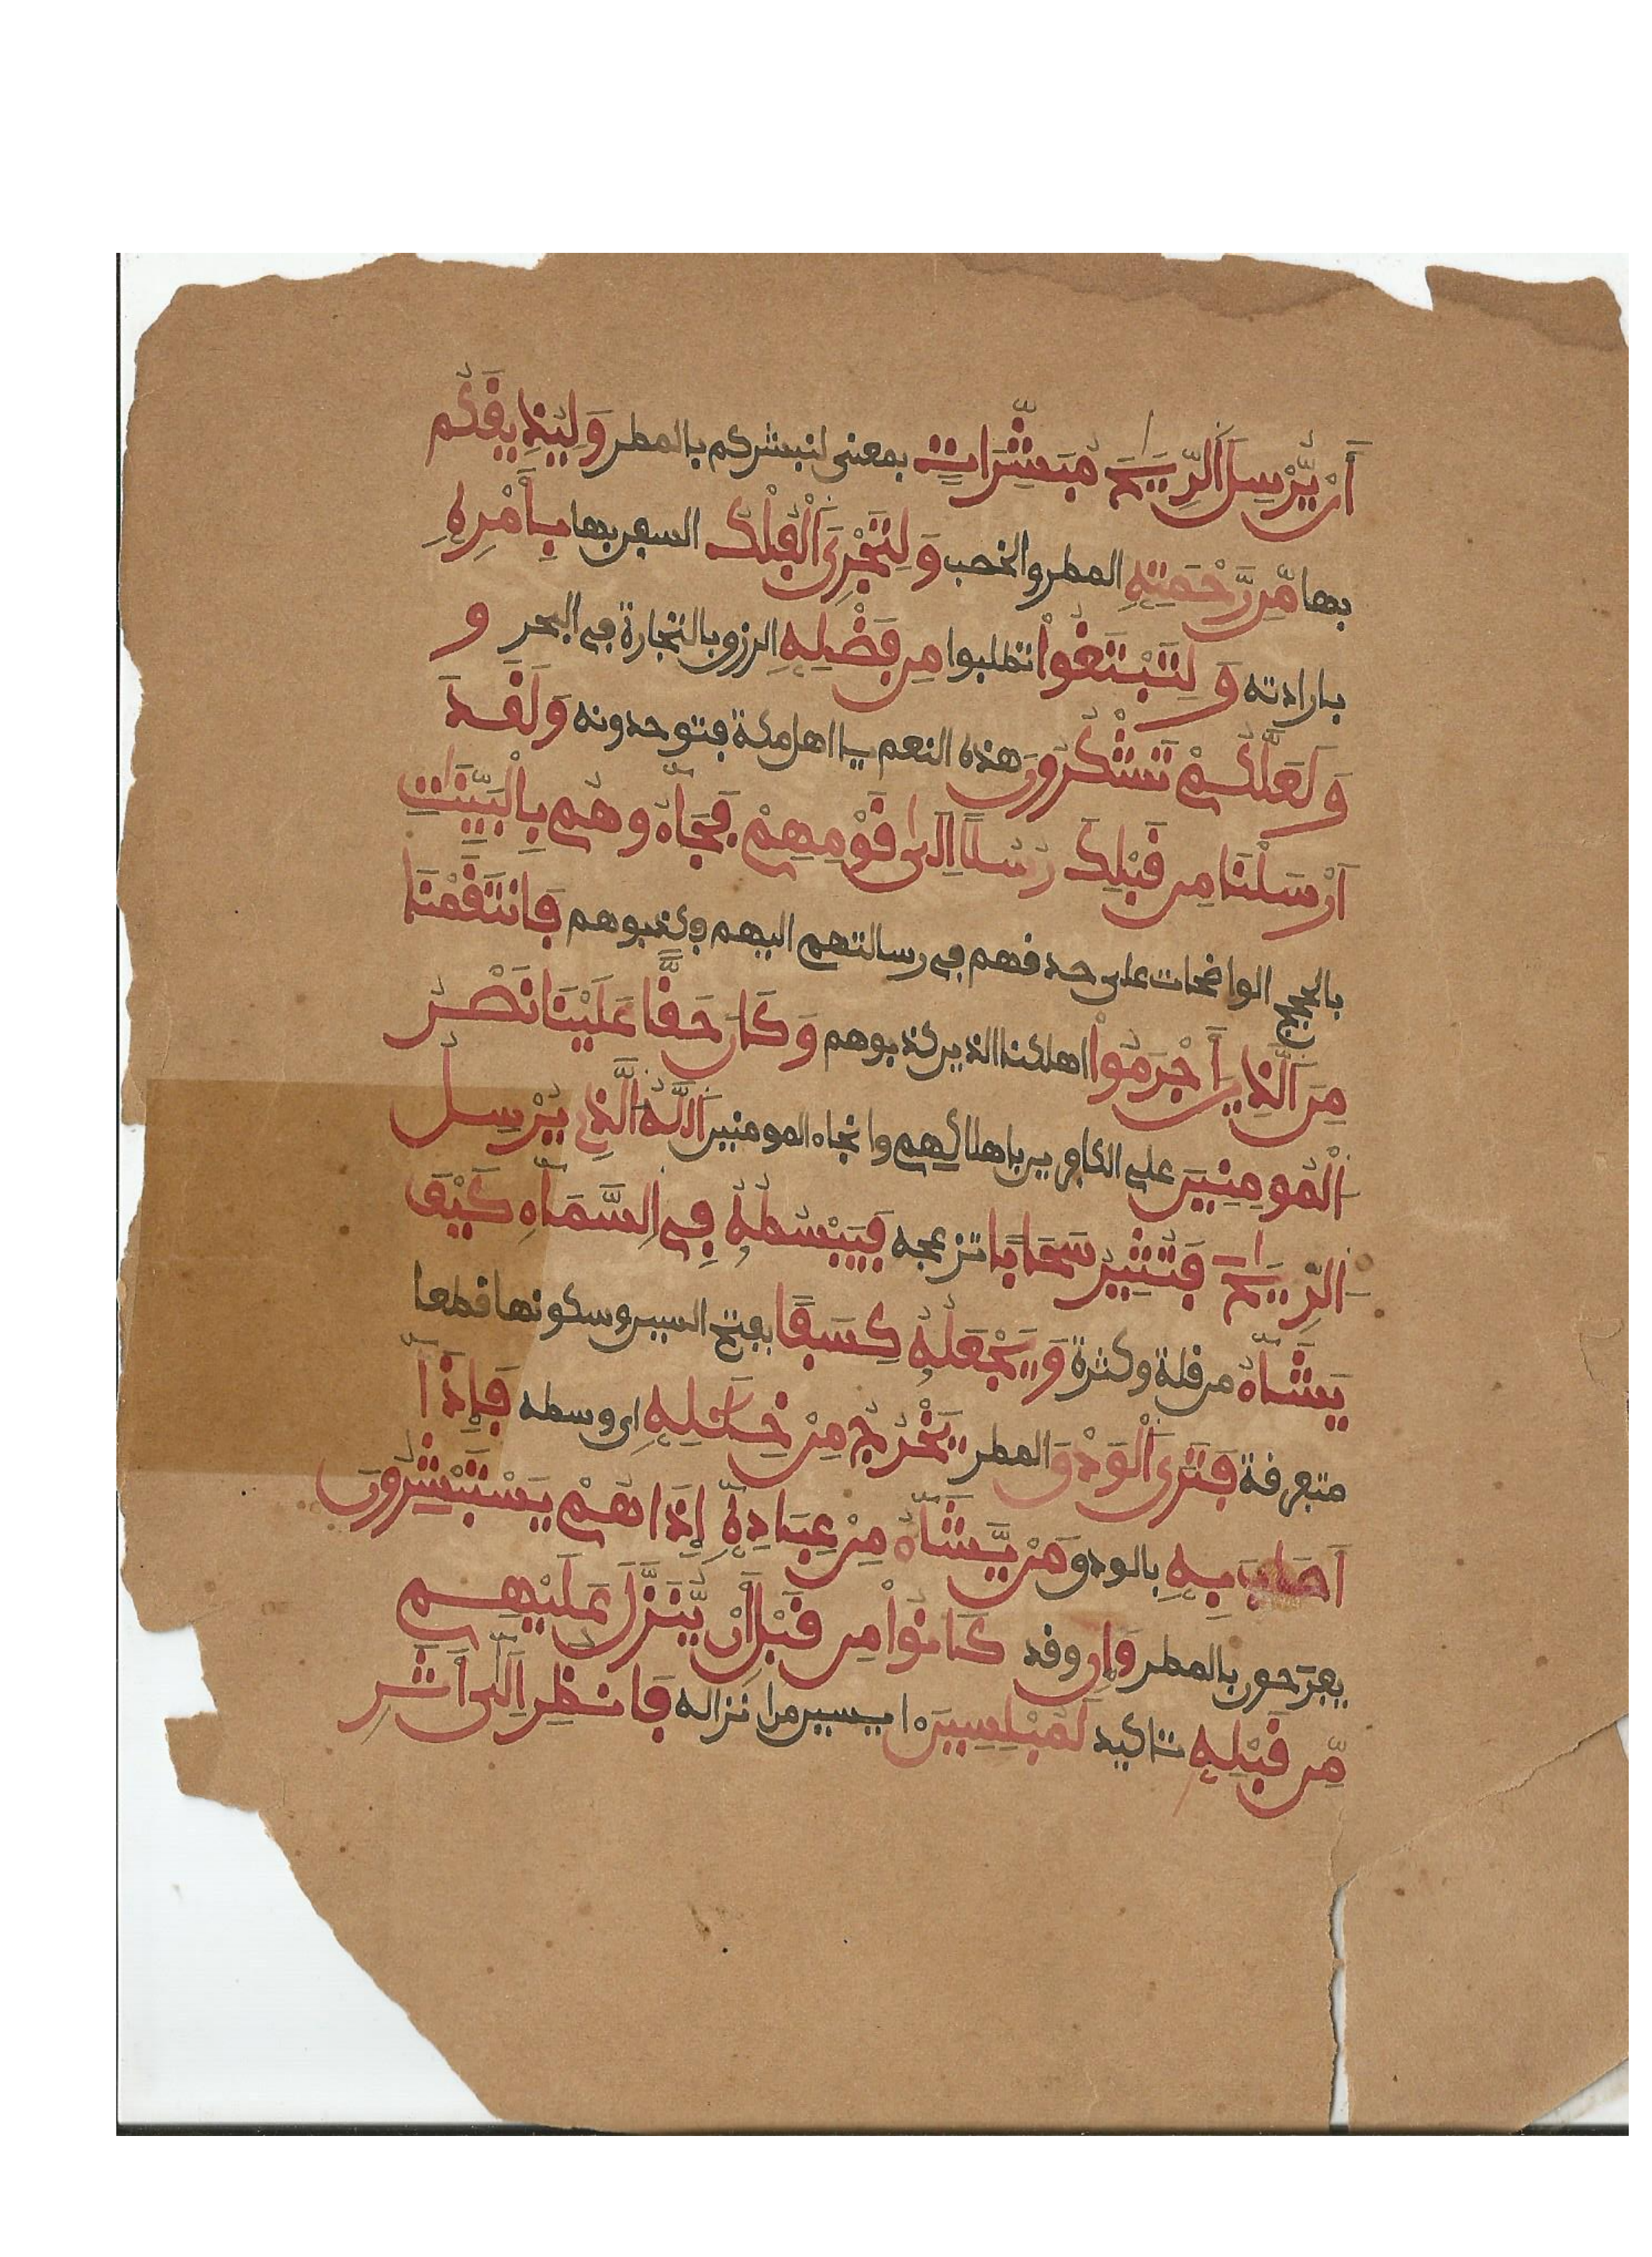 أَنْ يُّرْسِلَ اَلرِّيَٰحَ مُبَشِّرَاتٍ بمعنى لتبشركم بالمطر وَلِيُذِيقَكُم
بها مِّن رَّحْمَتِهِ المطر والخصب وَلِتَجْرِيَ اَلْفُلْكُ السفن بها بِأَمْرِهِ
بارادته وَلِتَبْتَغُوا تطلبوا مِن فَضْلِهِ الرزق بالتجارة في البحر و
وَلَعَلَّكُمْ تَشْكُرُونَ هذه النعم يا اهل مكة فتوحدونه وَلَقَدَ
اَرْسَلْنَا مِن قَبْلِكَ رُسُلًا اِلَىٰ قَوْمِهِمْ فَجَآءُوهُم بِالْبَيِّنَٰتِ
بالحجج الواضحات على صدقهم في رسالتهم اليهم فكذبوهم فَانتَقَمْنَا
مِنَ اَلَّذِينَ أَجْرَمُوا اهلكنا الذين كذبوهم وَكَانَ حَقًّا عَلَيْنَا نَصْرُ
اُلْمُومِنِينَ على الكافرين باهلاكهم وانجاء المومنين اَللَّهُ اُلَّذِي يُرْسِلُ
اُلرِّيَٰحَ فَتُثِيرُ سَحَابًا تزعجه فَيَبْسُطُهُ فِي اِلسَّمَآءِ كَيْفَ
يَشَآءُ من قلة وكثرة وَيَجْعَلُهُ كِسَفًا بفتح السين وسكونها قطعا
متفرقة فَتَرَى اَلْوَدْقَ المطر يَخْرُجُ مِنْ خِلَٰلِهِ اي وسطه فَإِذَآ
أَصَابَ بِهِ بالودق مَنْ يَّشَآءُ مِنْ عِبَادِهِ إِذَا هُمْ يَسْتَبْشِرُونَ
يفرحون بالمطر وَإِن وقد كَانُوا مِن قَبْلِ أَنْ يُّنَزَّلَ عَلَيْهِم
مِّن قَبْلِهِ تاكيد لَمُبْلِسِينَ ايسين من انزاله فَانظُرِ اِلَىٰٓ أَثَرِ